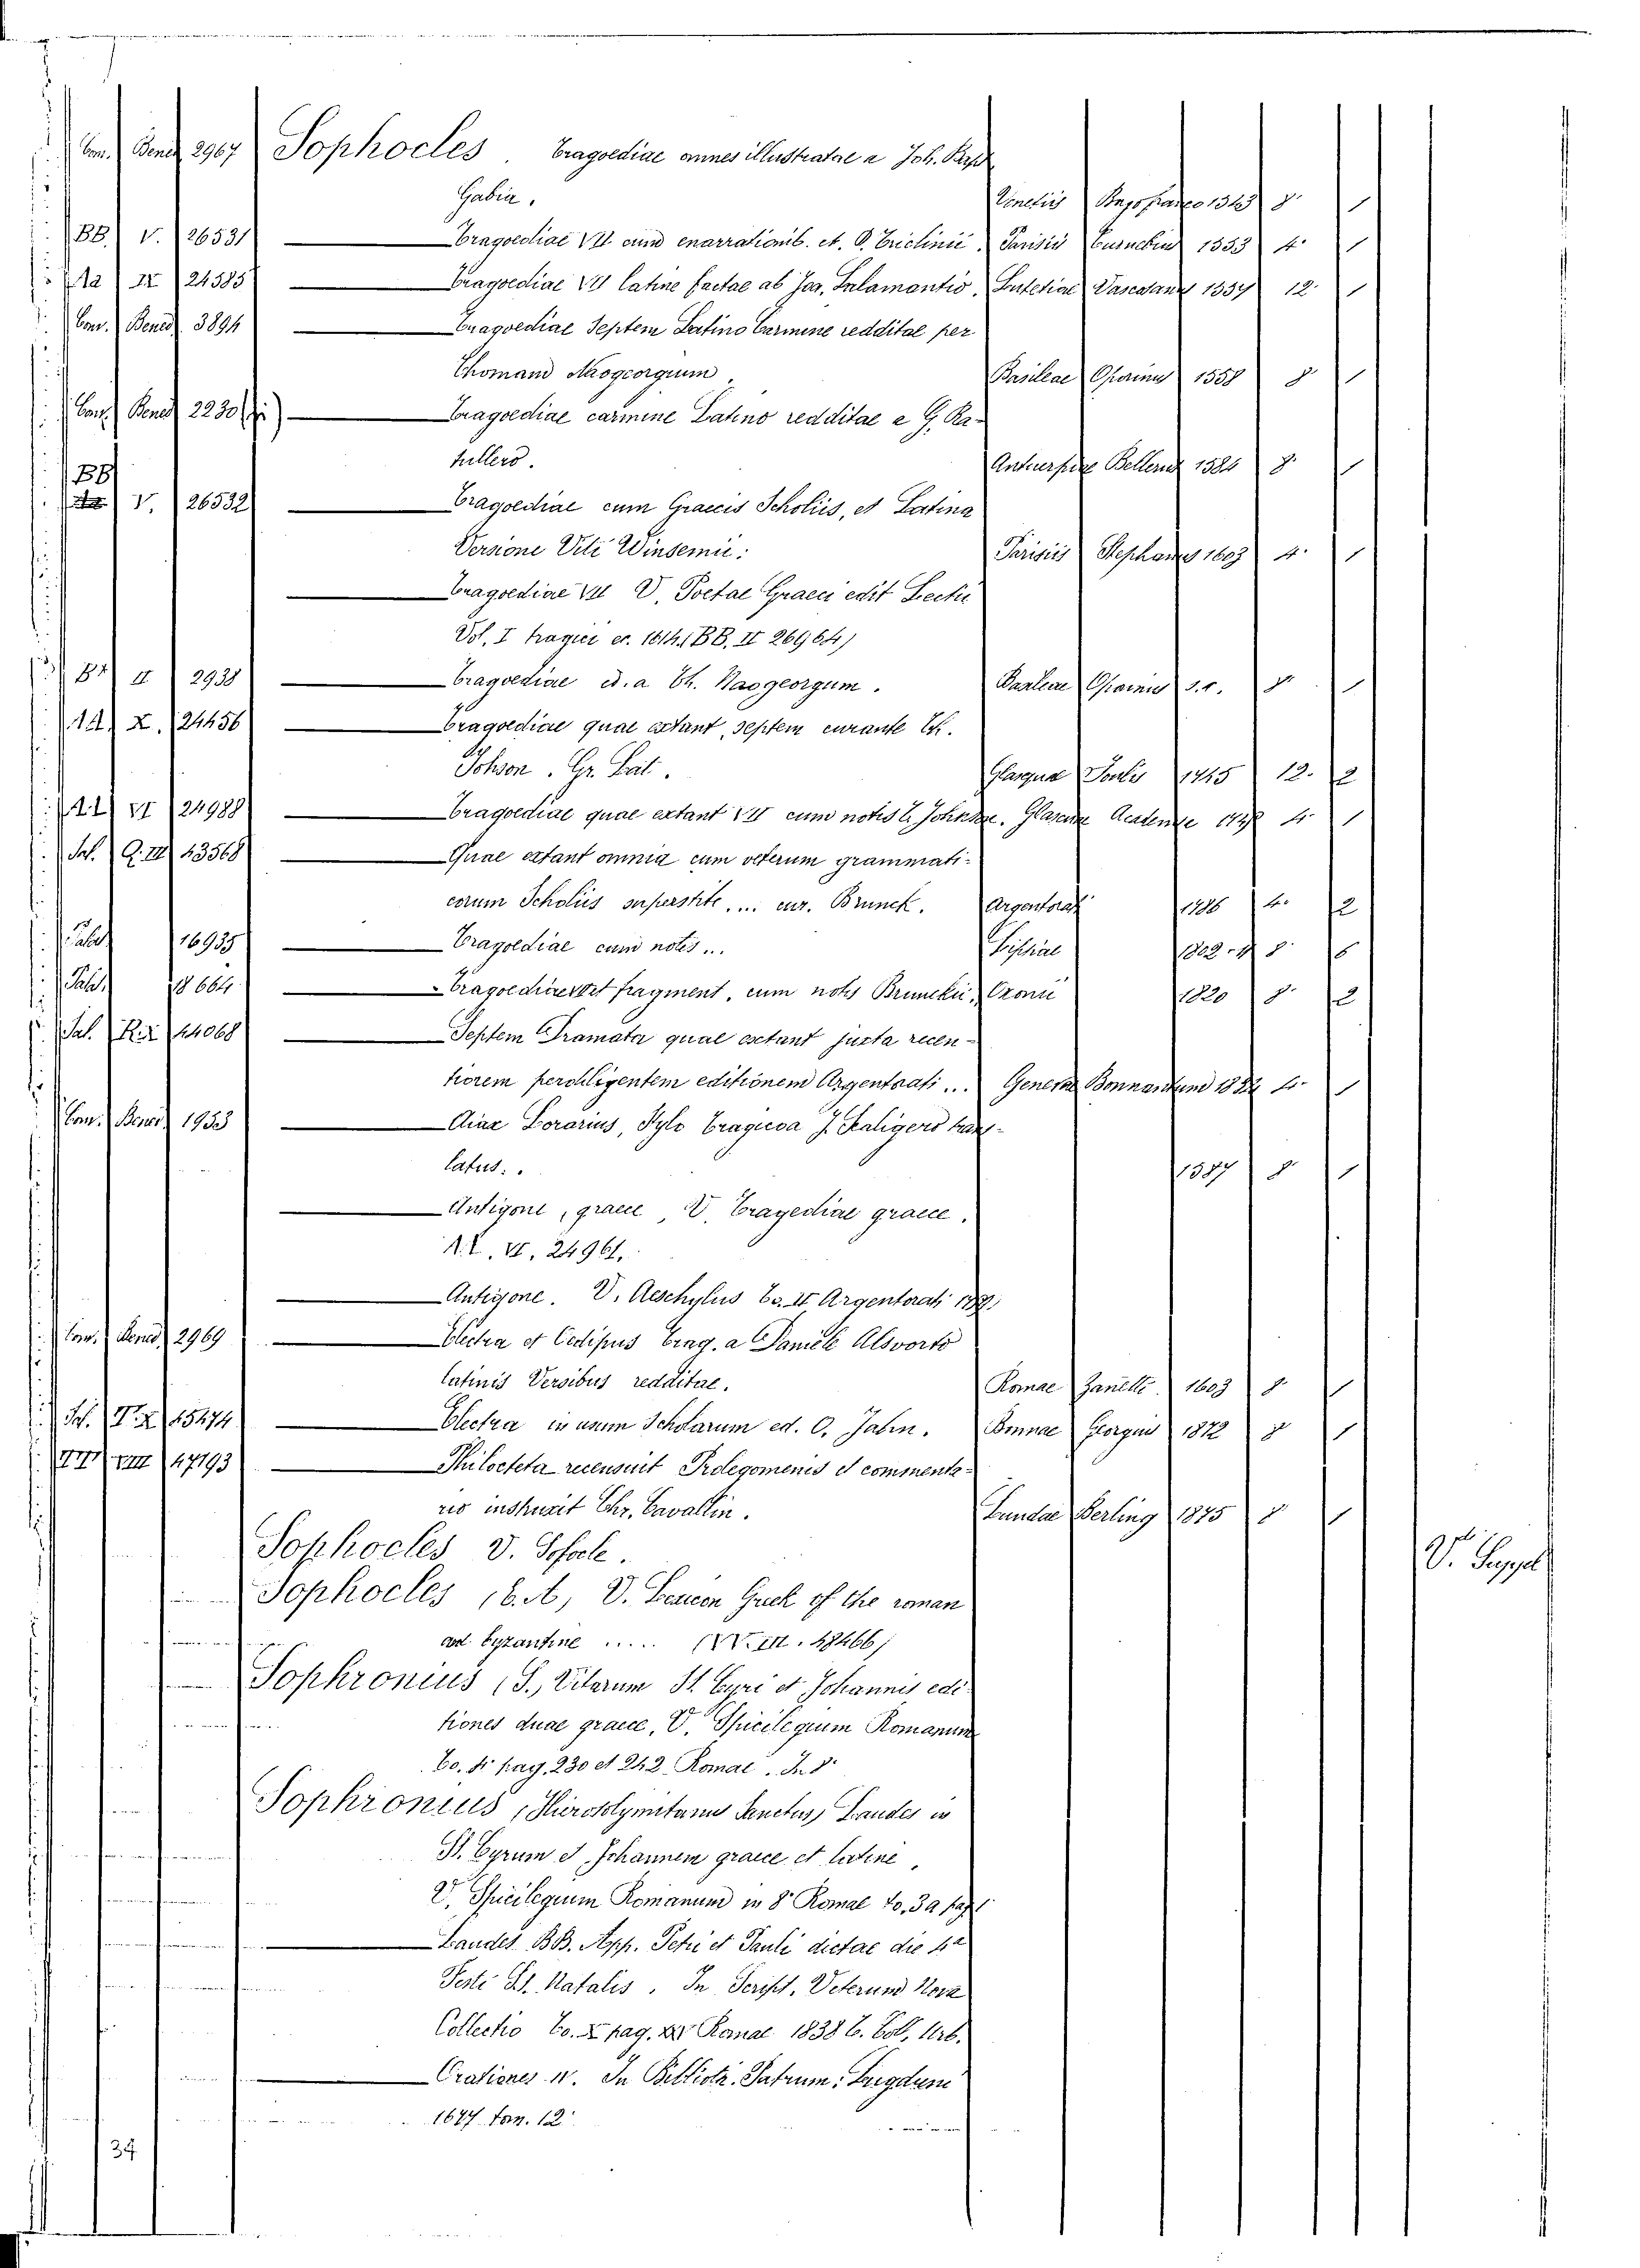 Con. Bened. 2967 Sophocles. Tragoediae omnes illustratae a Joh. Bapt.
Gabia. Venetiis 1543 8° 1
BB. V. 26531 Tragoediae VII cum enarrationib. et. D. Triclinii. Parisiis Turnebius 1553 4° 1
24585 Tragoediae VII latine factae ab Lalamantio. Lutetiae Vascosanus 1557 12° 1
Con. Bened. 3894 Tragoediae Septem Latino Carmine redditae per
Thomam Naogeorgium, Basileae Oporinus 1558 8° 1
Con. Bened. 2230 Tragoediae carmine Latino redditae a G. Ra-
tallero. Antuerpiae Bellerus 1584 8° 1
BB
V. 26532 Tragoediae cum Graecis Scholiis, et Latina
Versione Viti Winsemii: Parisiis Stephanus 1603 4° 1
Tragoediae VII V. Poetae Graeci edit Lectii
Vol. I tragici er. 1614. (BB. II 26964)
II 2938 Tragoediae ed. a Th. Naogeorgum. Basileae Oporinus s.a. 8° 1
X. 24456 Tragoediae quae extant, septem curante Th.
Johson. Gr. Lat. Glasguae Foulis 1745 12. 2
VI 24988 Tragoediae quae extant VII cum notis T. Glascuae Academiae 4° 1
Q. III 43568 Quae extant omnia cum veterum grammati-
corum Scholiis superstite.... cur. Brunck. Argentorati 1786 4° 2
16935 Tragoediae cum notis... Lipsiae 8° 6
18664 fragment. cum notis Brunckii, Oxonii 1820 8° 2
Sal. R.X 44068 Septem Dramata quae extant juxta recen-
tiorem perdiligentem editionem Argentorati... Generae 4° 1
Con. Bened. 1953 Aiax Lorarius, Stylo Tragico a J. Scaligero trans-
latus. 1587 8° 1
Antigone, graece, V. Tragediae graece.
A.L. VI. 24961.
Antigone. V. Aeschylus To. II Argentorati
Con. Bened. 2969 Electra et Oedipus Trag. a Daniele Alsvorto
latinis Versibus redditae. Romae Zanetti 1603 8° 1
45474 Electra in usum Scholarum ed. O. Jahn. Bonnae 1872 8° 1
VIII 47193 Philocteta recensuit Prolegomenis et commenta-
rio instruxit Chr. Cavallin. Lundae Berling 1875 8° 1
Sophocles V. Sofocle. V. Suppl.
Sophocles (E. A.) V. Lexicon Greek of the roman
and byzantine ..... (VV. III. 48466)
Sophronius (S.) Vitarum St. Cyri et Johannis edi-
tiones duae graece, V. Spicilegium Romanum
To. 4° pag. 230 et 242 Romae. In 8°
Sophronius (Hierosolymitanus Sanctus) Laudes in
St. Cyrum et Johannem graece et latine,
V. Spicilegium Romanum in 8° Romae to. 3a pag. 1
Laudes BB. App. Petri et Pauli dictae die 4a
Festi St. Natalis. In Script. Veterum Nova
Collectio To. X pag. Romae 1838 Urb.
Orationes IV. In Biblioth. Patrum. Lugduni
1677 tom. 12
34